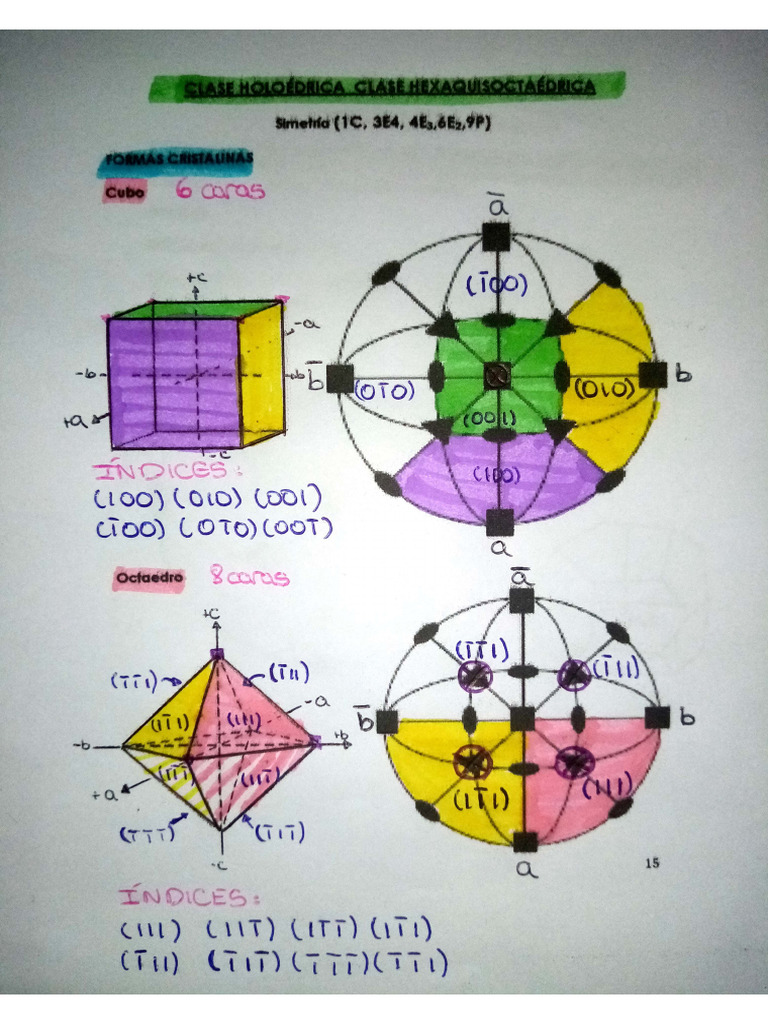 CLASE HOLOÉDRICA. CLASE HEXAQUISOCTAÉDRICA
Simetría (1C, 3E4, 4E₃,6E₂,9P)
FORMAS CRISTALINAS
Cubo 6 caras
a̅
(1̅00)
+c
-a
-b
+b
+a
-c
b̅
(01̅0)
(010)
b
(001)
(100)
a
ÍNDICES:
(100) (010) (001)
(1̅00) (01̅0) (001̅)
Octaedro 8 caras
a̅
+c
(1̅1̅1)
(1̅11)
(1̅1̅1)
(1̅11)
-a
(11̅1)
(111)
b̅
b
-b
+b
(11̅1̅)
(111̅)
+a
(11̅1)
(111)
(1̅1̅1̅)
(1̅11̅)
-c
a
15
ÍNDICES:
(111) (111̅) (11̅1̅) (11̅1)
(1̅11) (1̅11̅) (1̅1̅1̅) (1̅1̅1)